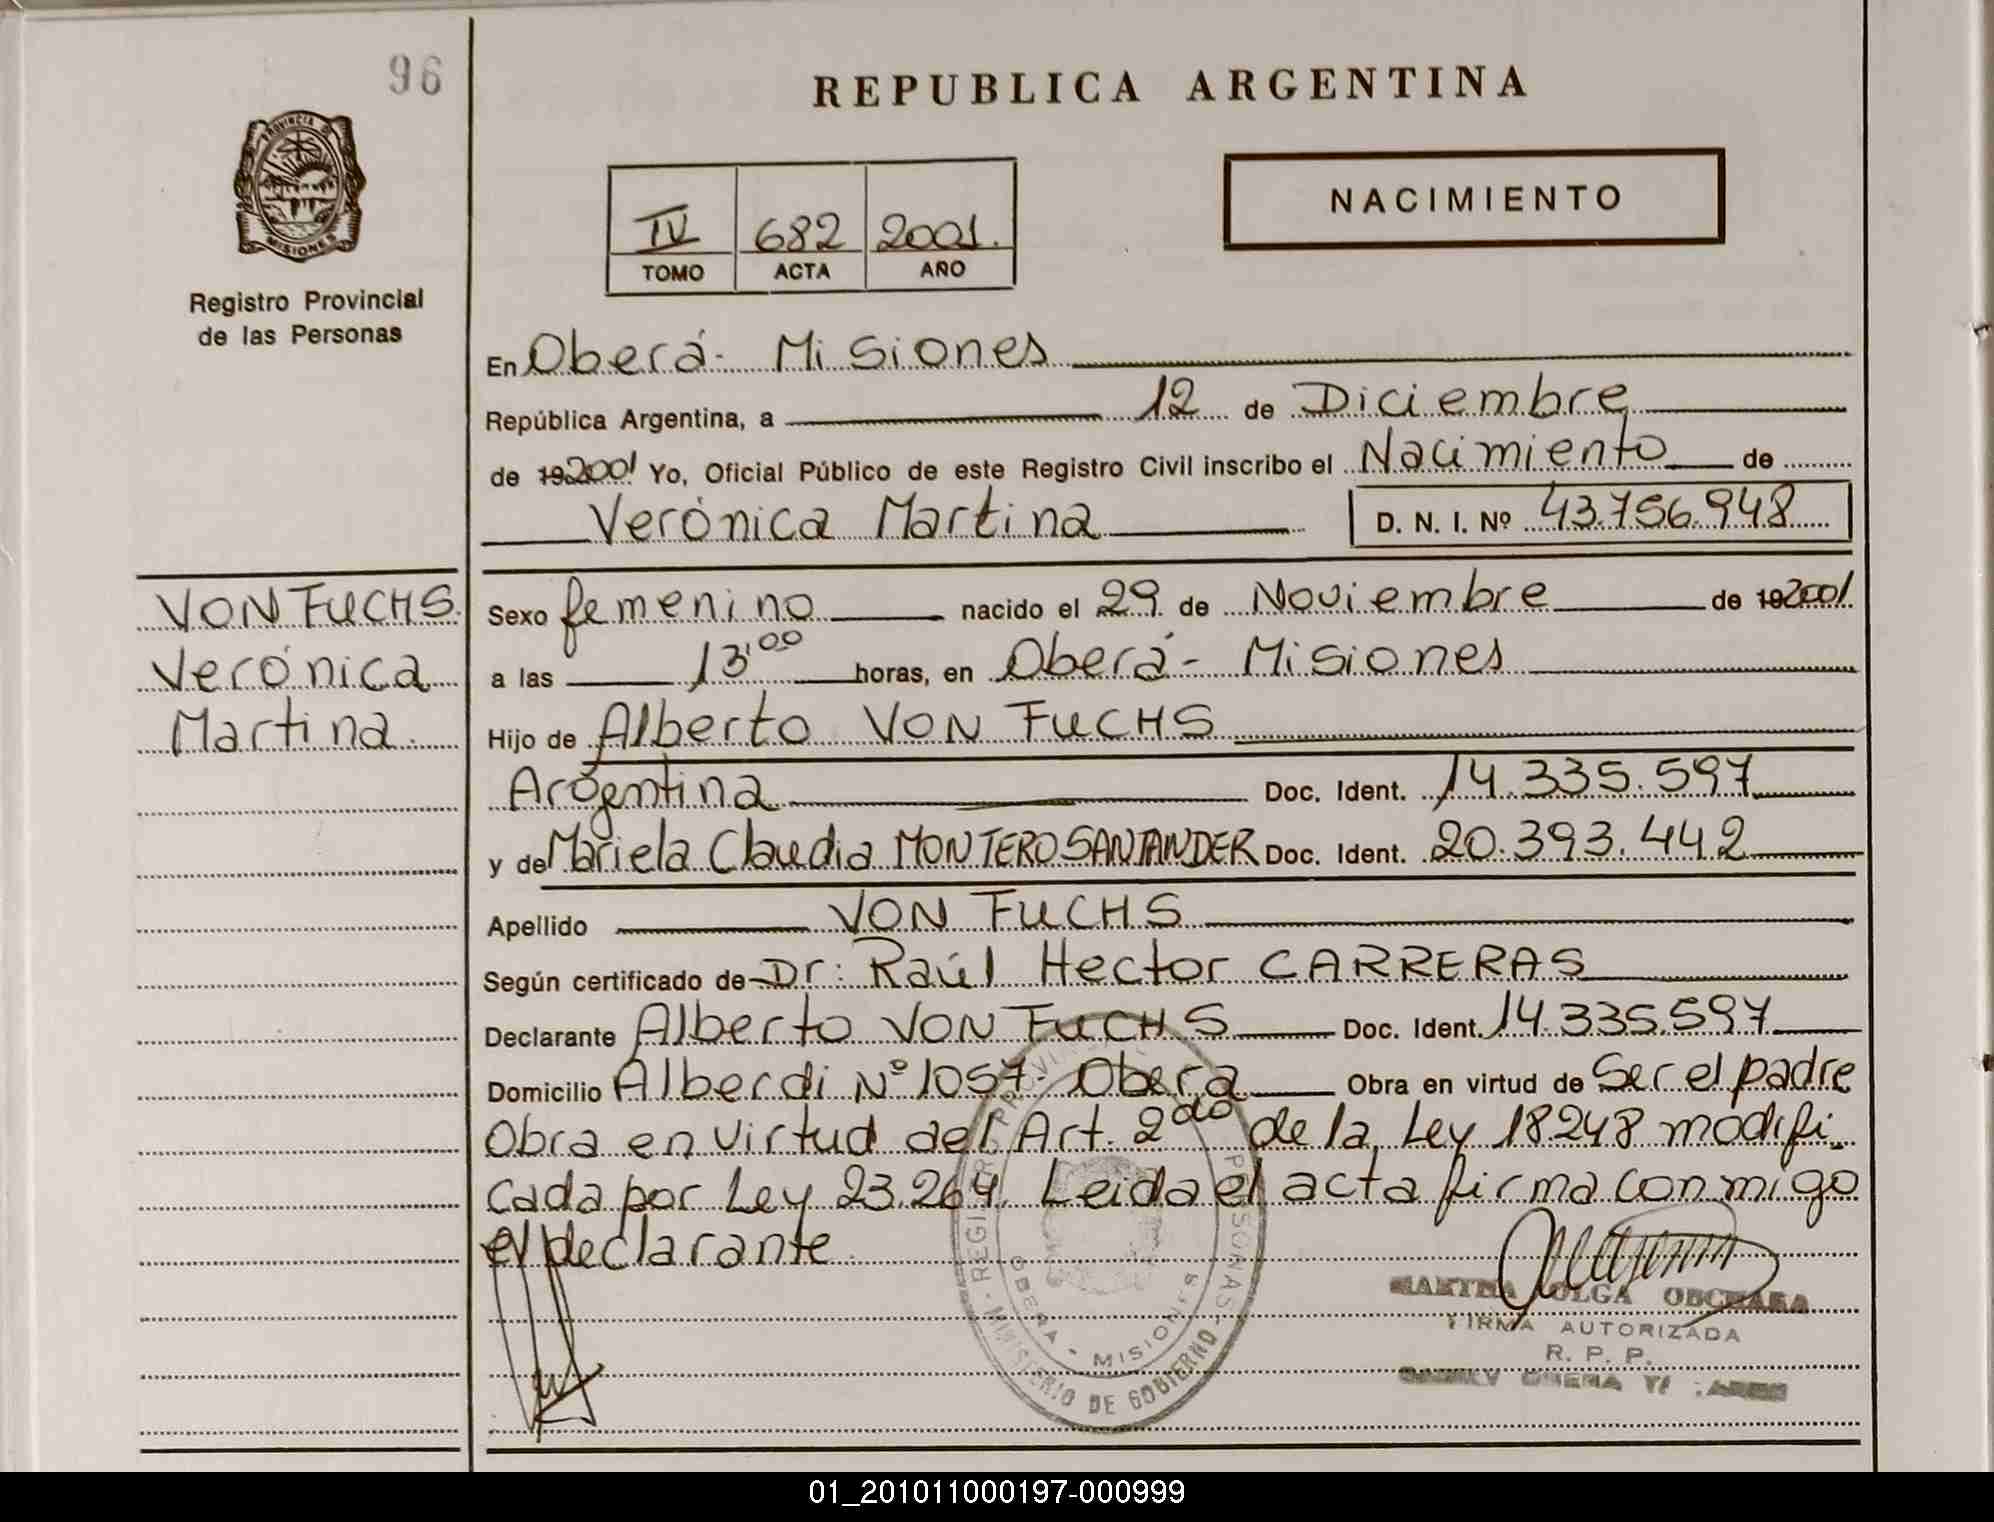 96
REPUBLICA ARGENTINA
PROVINCIA D
MISIONES
Registro Provincial
de las Personas
IV 682 2001.
TOMO ACTA AÑO
NACIMIENTO
En Oberá- Misiones
República Argentina, a 12 de Diciembre
de 192001 Yo, Oficial Público de este Registro Civil inscribo el Nacimiento de
Verónica Martina D. N. I. Nº 43.756.948
VON FUCHS.
Verónica
Martina.
Sexo femenino nacido el 29 de Noviembre de 192001
a las 13'00 horas, en Oberá- Misiones
Hijo de Alberto VON FUCHS
Argentina Doc. Ident. 14.335.597
y de Mariela Claudia MONTERO SANTANDER Doc. Ident. 20.393.442
Apellido VON FUCHS
Según certificado de Dr: Raúl Hector CARRERAS
Declarante Alberto VON FUCHS Doc. Ident. 14.335.597
Domicilio Alberdi Nº 1057- Obera Obra en virtud de Ser el padre
Obra en virtud del Art. 2do de la Ley 18248 modifi-
cada por Ley 23.264. Leida el acta firma conmigo
el declarante.
MINISTERIO DE GOBIERNO
OBERA - MISIONES
MARTHA OLGA
FIRMA AUTORIZADA
R. P. P.
01_201011000197-000999